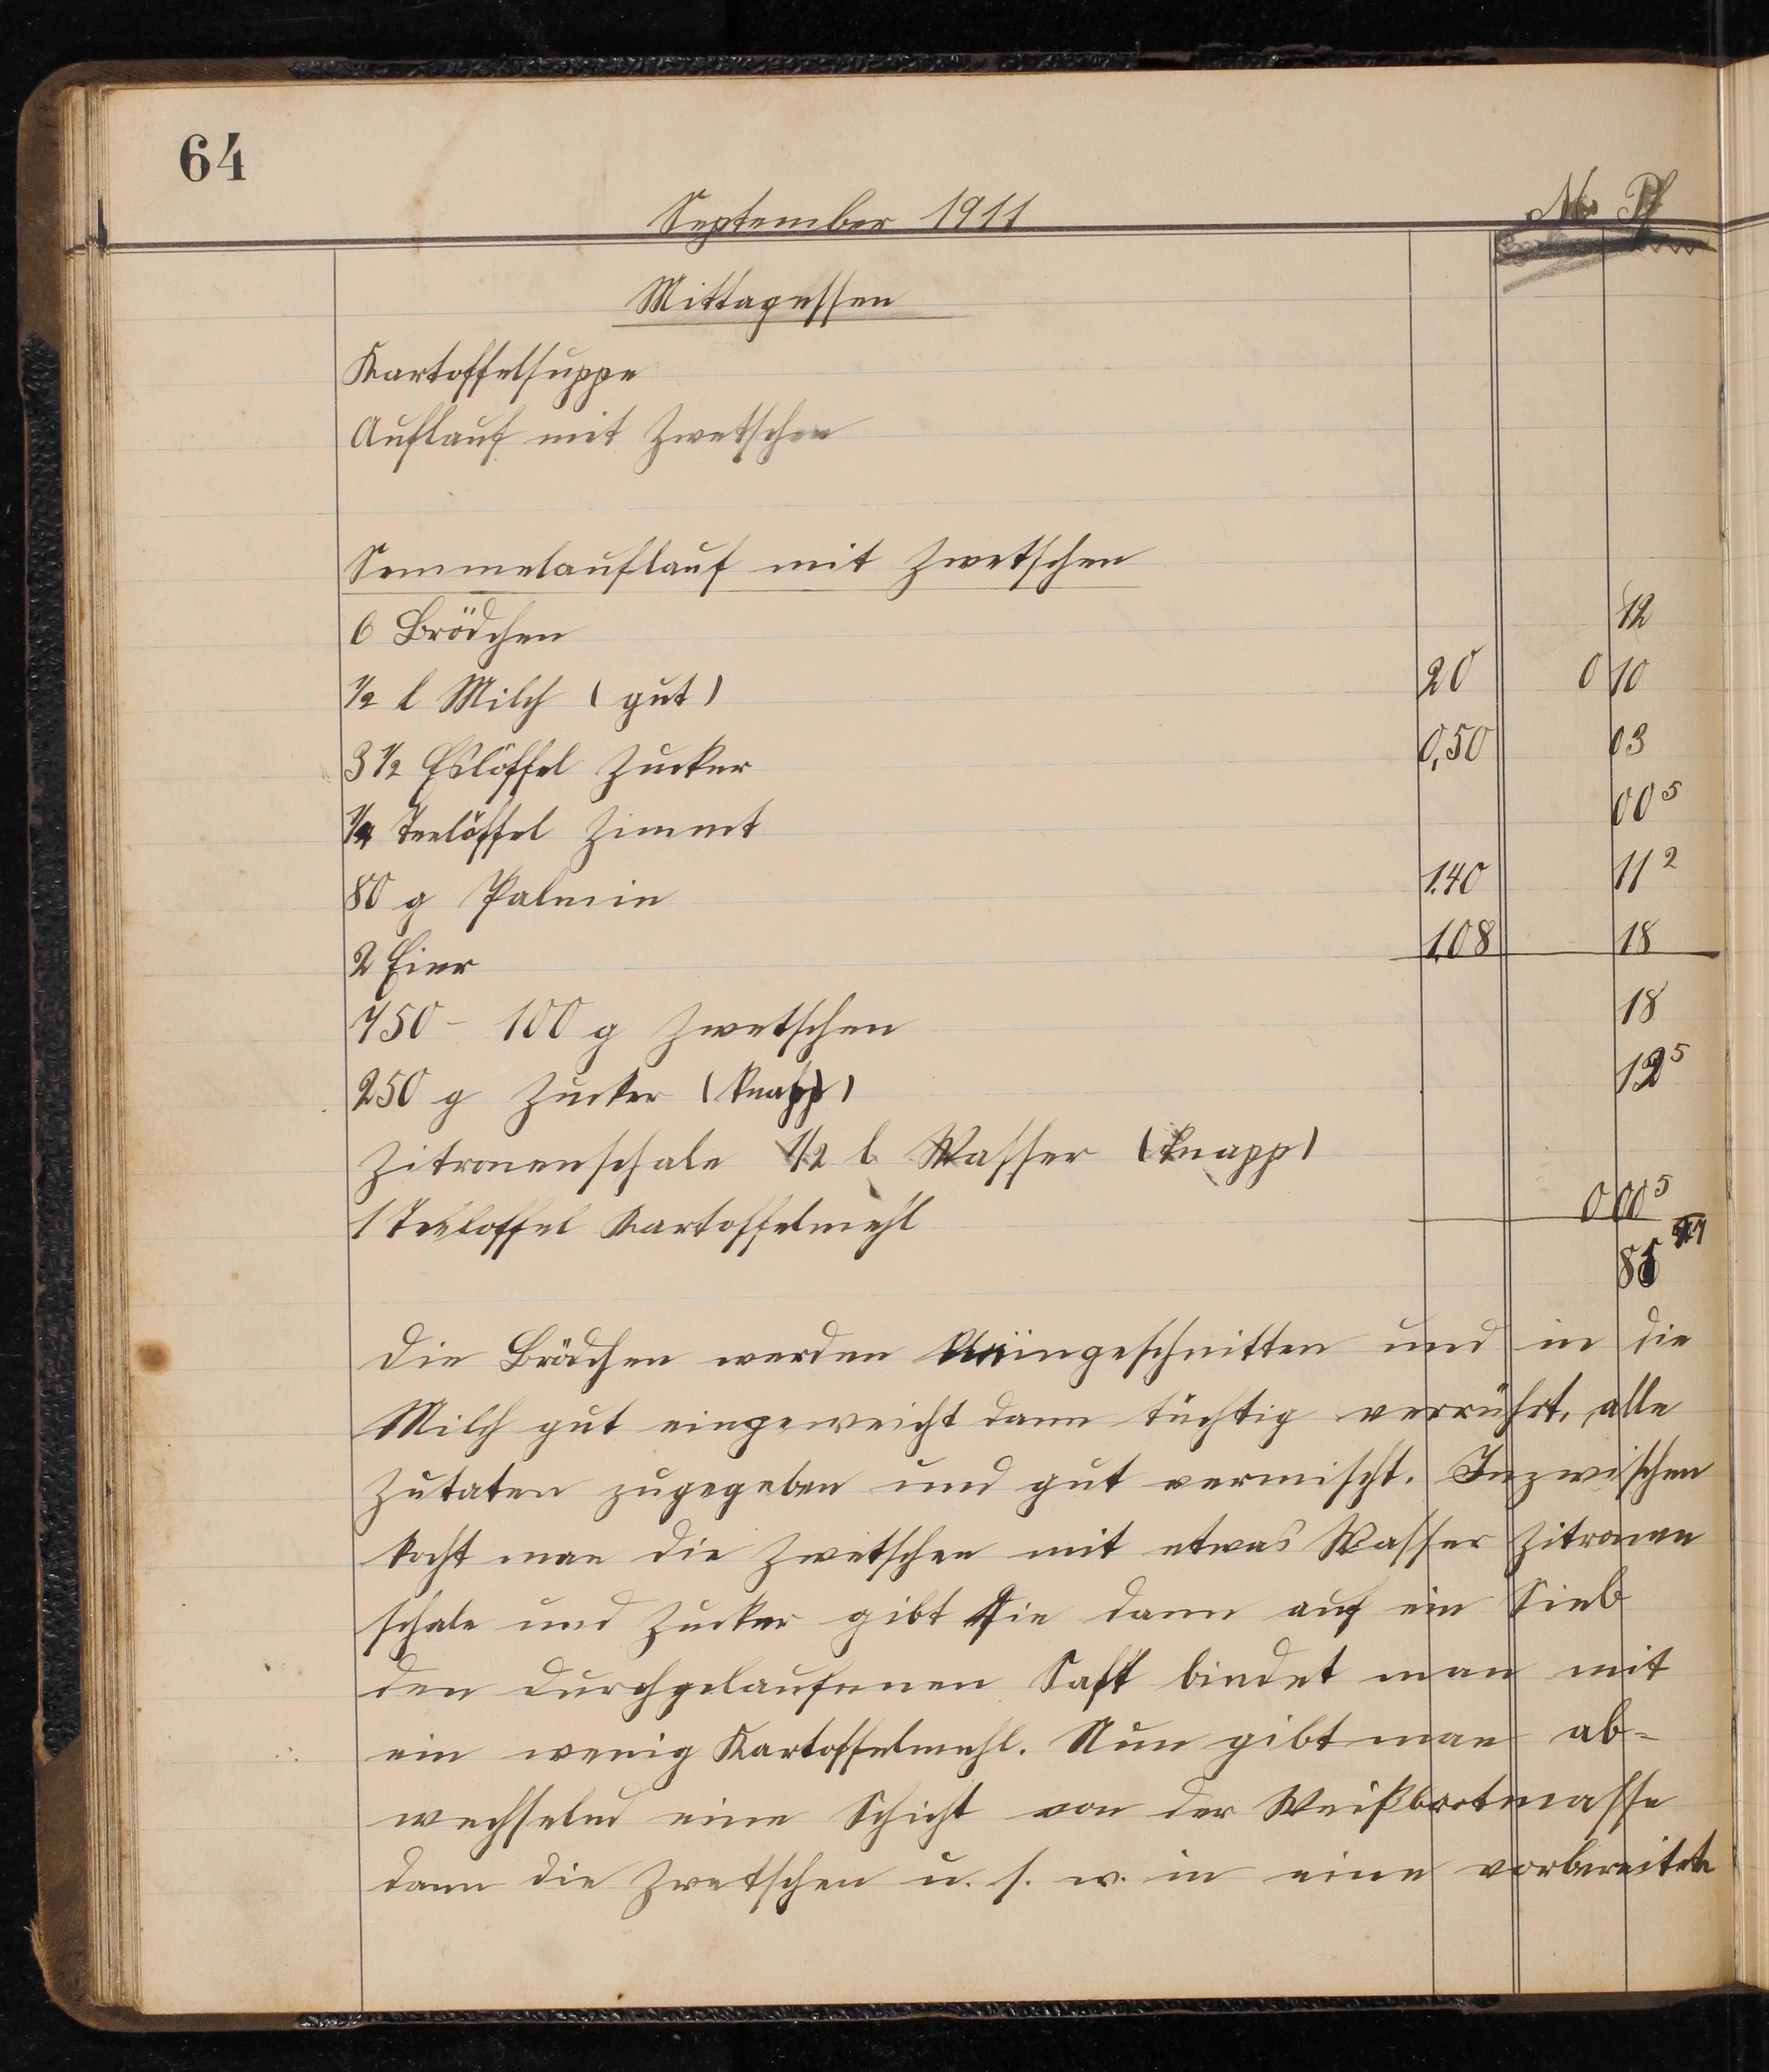 64
September 1911 M Pf
Mittagessen
Kartoffelsuppe
Auflauf mit Zwetschen
Semmelauflauf mit Zwetschen
6 Brödchen 12
1/2 l Milch (gut) 20 0 10
3 1/2 Eslöffel Zucker 0,50 03
1/4 Teelöffel Zimmt 00 5
80 g Palmin 1.40 11 2
2 Eier 1,08 18
750 - 100 g Zwetschen 18
250 g Zucker (knapp) 12 5
Zitronenschale 1/2 l Wasser (knapp)
1 Teeloffel Kartoffelmehl 0 00 5
85
Die Brödchen werden eingeschnitten und in die
Milch gut eingeweicht dann tüchtig verrührt, alle
Zutaten zugegeben und gut vermischt. Inzwischen
kocht man die Zwetschen mit etwas Wasser Zitronen
schale und Zucker gibt Sie dann auf ein Sieb
den durchgelaufenen Saft bindet man mit
ein wenig Kartoffelmehl. Nun gibt man ab=
wechselnd eine Schicht von der Weißbrotmasse
dann die Zwetschen u. s. w. in eine vorbereitete